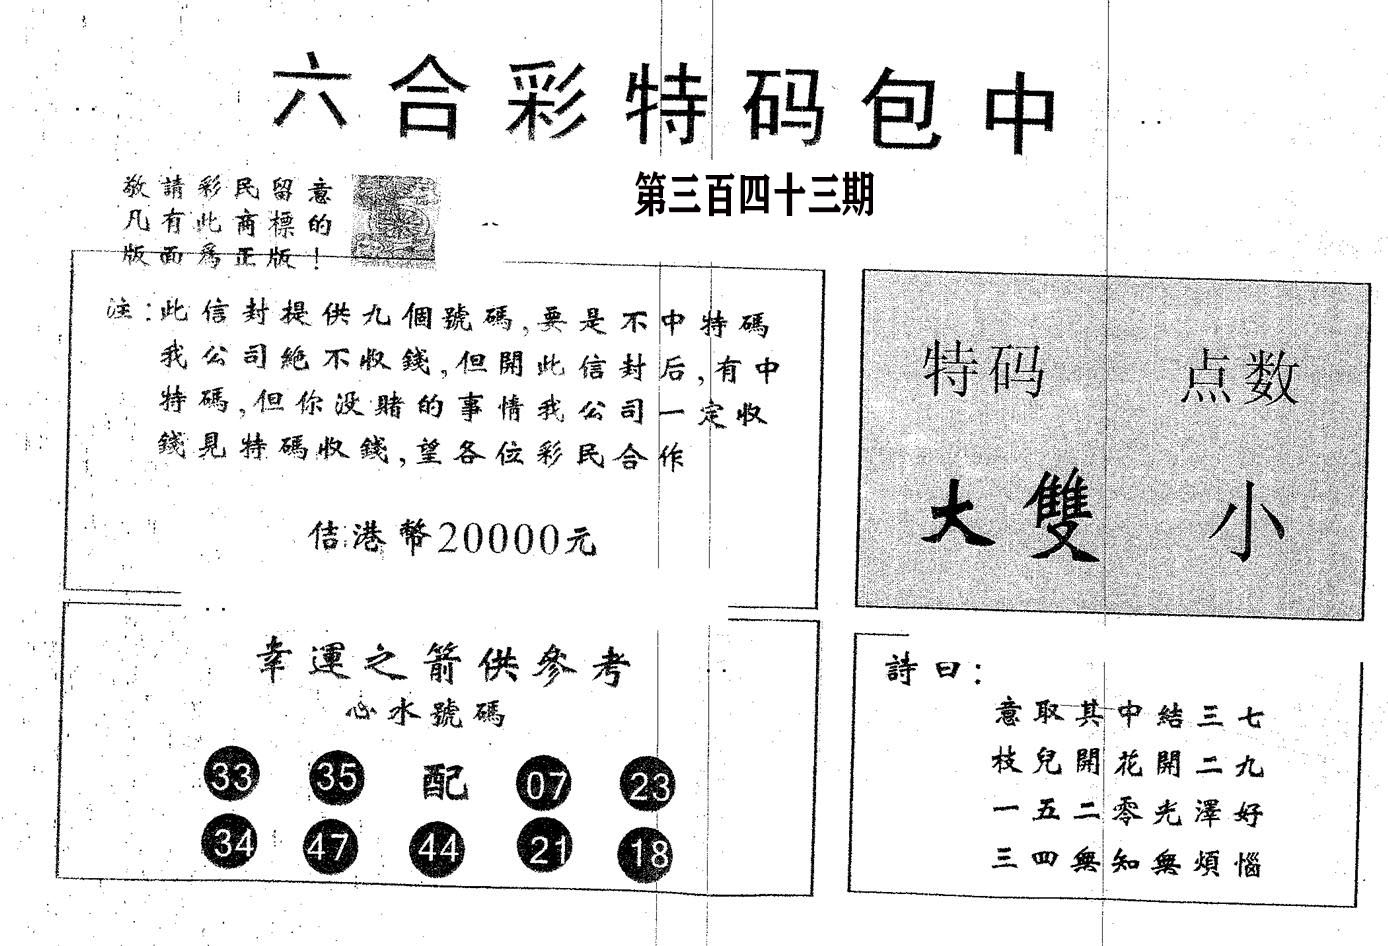 六合彩特码包中
第三百四十三期
敬請彩民留意
凡有此商標的
版面爲正版！
注:此信封提供九個號碼,要是不中特碼
我公司絶不收錢,但開此信封后,有中
特碼,但你没賭的事情我公司一定收
錢見特碼收錢,望各位彩民合作
佶港幣20000元
特码 点数
大雙 小
幸運之箭供參考
心水號碼
33 35 配 07 23
34 47 44 21 18
詩曰:
意取其中結三七
枝兒開花開二九
一五二零光澤好
三四無知無煩惱